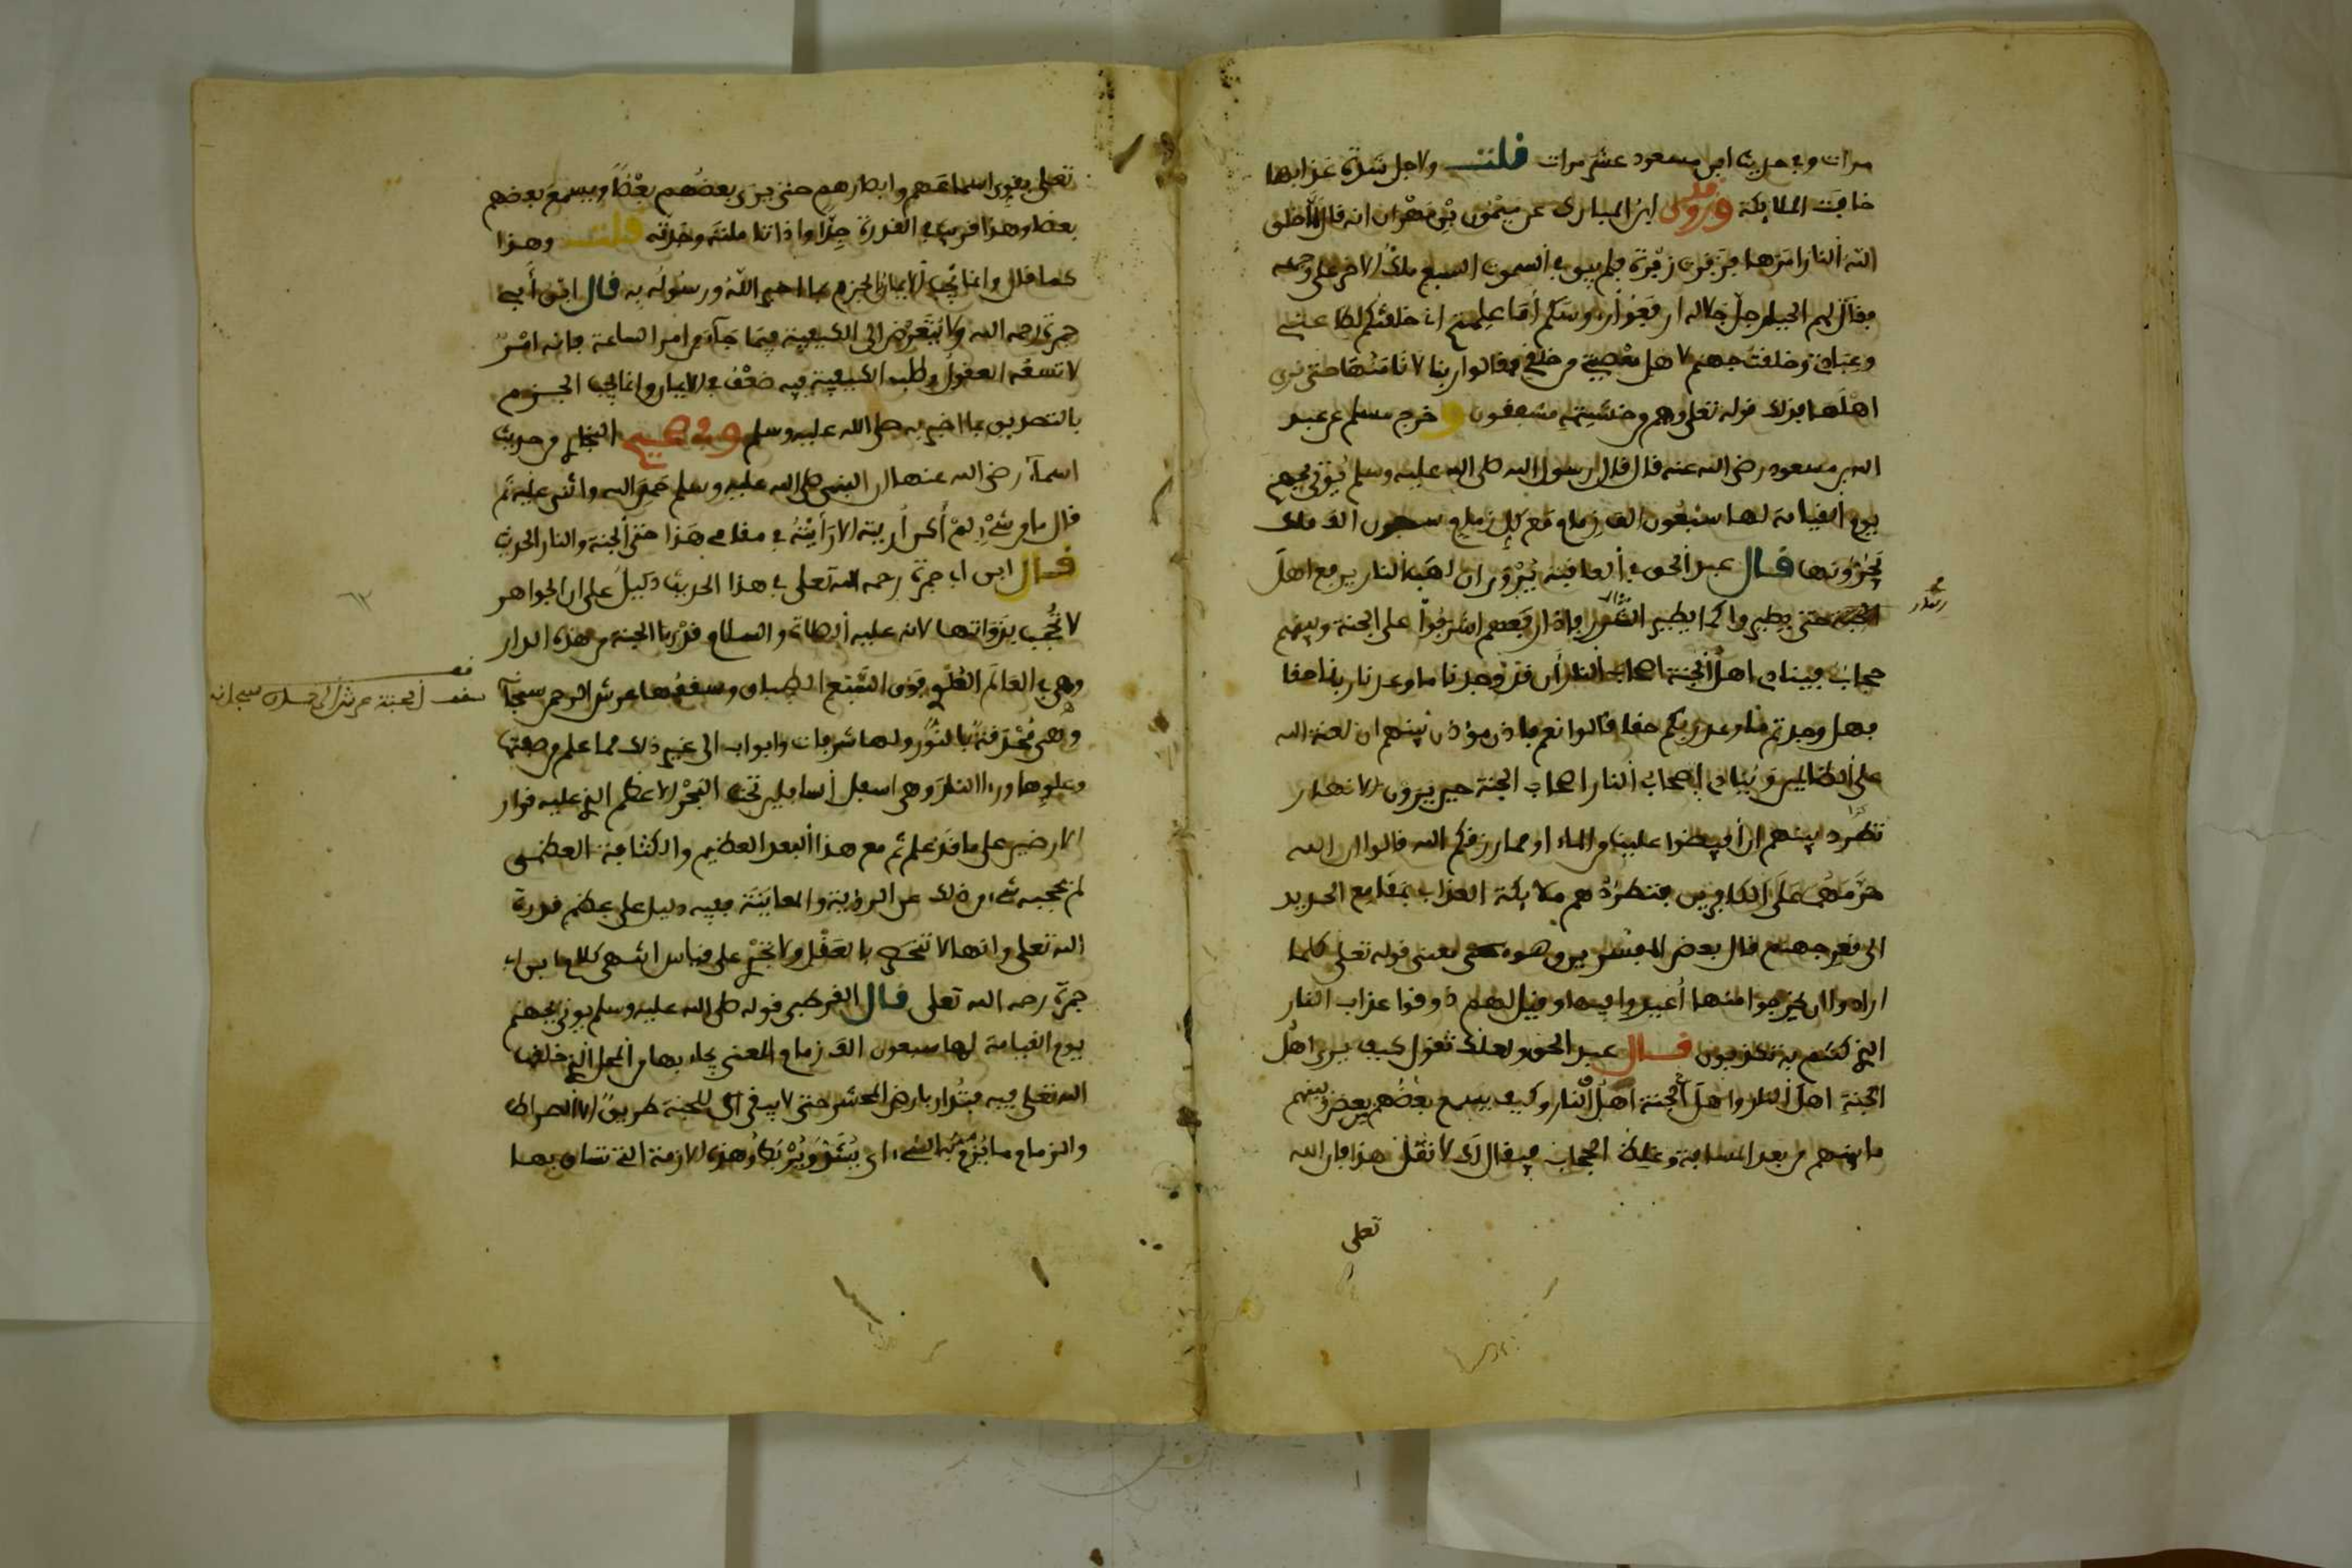 مرات وفي حديث ابن مسعود عشر مرات قلت ولاجل شدة عذابها
خافت الملايكة وروى ابن المبارك عن ميمون بن مهران انه قال لما خلق
الله النار امرها فزفرت زفرة فلم يبق في السموت السبع ملك الا خر على وجهه
فقال لهم الجبار جل جلاله ارفعوا رءوسكم أما علمتم اني خلقتكم لطاعتي
وعبادتي وخلقت جهنم لاهل معصيتي من خلقي فقالوا ربنا لا نامنها حتى نرى
اهلها فذلك قوله تعلى وهم من خشيته مشفقون وخرج مسلم عن عبد
الله بن مسعود رضي الله عنه قال قال رسول الله صلى الله عليه وسلم يؤتى بجهنم
يوم القيامة لها سبعون الف زمام مع كل زمام سبعون الف ملك
يجرونها قال عبد الحق في العاقبة يروى ان لهب النار يرفع اهل
حتى يطيروا كما يطير الشرر فاذا رفعهم اشرفوا على الجنة وبينهم
حجاب فينادي اهل الجنة اصحاب النار أن قد وجدنا ما وعدنا ربنا حقا
فهل وجدتم ما وعد ربكم حقا قالوا نعم فاذن مؤذن بينهم ان لعنة الله
على الظالمين وينادي اصحاب النار اصحاب الجنة حين يرون الانهار
تطرد بينهم ان أفيضوا علينا من الماء او مما رزقكم الله قالوا ان الله
حرمهما على الكافرين فتطردهم ملايكة العذاب بمقامع الحديد
الى قعر جهنم قال بعض المفسرين وهو معنى قوله تعلى كلما
ارادوا ان يخرجوا منها أعيدوا فيها وقيل لهم ذوقوا عذاب النار
الذي كنتم به تكذبون قال عبد الحق ولعلك تقول كيف يرى اهل
الجنة اهل النار واهل الجنة اهل النار وكيف يسمع بعضهم بعض وبينهم
ما بينهم من بعد المسافة وغلظ الحجاب فيقال لك لا تقل هذا فان الله
تعلى
تعلى يقوي اسماعهم وابصارهم حتى يرى بعضهم بعضا ويسمع بعضهم
بعضا وهذا قريب في القدرة جدا واذا تاملته وجدته قلت وهذا
كما قال وانما يجب الايمان الجزم بما اخبر الله ورسوله به قال ابن أبي
جمرة رحمه الله ولا يتعرض الى الكيفية فيما جاء من امر الساعة فانه امر
لا تسعه العقول وطلب الكيفية فيه ضعف في الايمان وانما يجب الجزم
بالتصديق بما اخبر به صلى الله عليه وسلم وفي صحيح البخاري من حديث
اسماء رضي الله عنها ان النبي صلى الله عليه وسلم حمد الله واثنى عليه ثم
قال ما من شيء لم أكن أريته الا رأيته في مقامي هذا حتى الجنة والنار الحديث
قال ابن ابي جمرة رحمه الله تعلى في هذا الحديث دليل على ان الجواهر
لا تحجب بذواتها لانه عليه الصلاة والسلام قد رءا الجنة من هذه الدار
وهي في العالم العلوي فوق السبع الطباق وسقفها عرش الرحمن سبحانه
وهي محدقة بالنور ولها شرفات وابواب الى غير ذلك مما علم من صفتها
وعلوها ورءا النار وهي اسفل السافلين تحت البحر الاعظم الذي عليه قرار
الارضين على ما قد علم ثم مع هذا البعد العظيم والكثافة العظمى
لم يحجبه شيء من ذلك عن الرؤية والمعاينة ففيه دليل على عظم قدرة
الله تعلى وانها لا تنحصر بالعقل ولا تجري على قياس انتهى كلام ابن ابي
جمرة رحمه الله تعلى قال القرطبي قوله صلى الله عليه وسلم يوتى بجهنم
يوم القيامة لها سبعون الف زمام المعنى يجاء بها من المحل الذي خلقها
الله تعلى فيه فتدار بارض المحشر حتى لا يبقى الى للجنة طريق الا الصراط
والزمام ما يزم به الشيء اي يشد ويربط وهذه الازمة التي تساق بها
سقف الجنة عرش الرحمن سبحانه